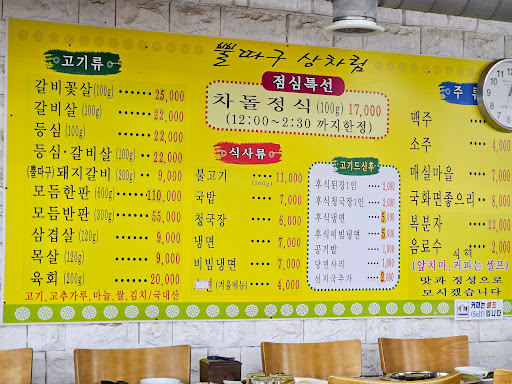 뿔따구 상차림
고기류
갈비꽃살(100g) ····· 25,000
갈비살 (100g) ······ 22,000
등심 (100g) ········ 22,000
등심·갈비살(100g) ·· 22,000
(뿔따구)돼지갈비(300g) ·· 9,000
모듬한판(600g) ···· 110,000
모듬반판(300g) ···· 55,000
삼겹살 (120g) ······ 9,000
목살 (120g) ········ 9,000
육회 (200g) ······· 20,000
고기, 고추가루, 마늘, 쌀, 김치/국내산
점심특선
차돌정식(100g) 17,000
(12:00~2:30 까지한정)
식사류
불고기 (200g) ···· 11,000
국밥 ···· 7,000
청국장 ···· 6,000
냉면 ···· 7,000
비빔냉면 ···· 7,000
(겨울메뉴) ···· 4,000
고기드신후
후식된장1인
후식청국장1인
후식냉면
후식비빔냉면
공기밥
당면사리
선지국추가
주 류
맥주
소주 ···· 4,000
매실마을 ···· 7,000
국화면좋으리 ·· 8,000
복분자 ···· 12,000
음료수 식혜 ···· 2,000
(앞치마, 커피는 셀프)
맛과 정성으로
모시겠습니다
커피는 셀프
(Self)입니다